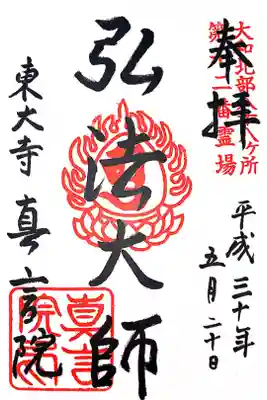 奉拝
大和北部八十八ヶ所
第十二番霊場
平成三十年
五月二十日
弘法大師
東大寺 真言院
真言院